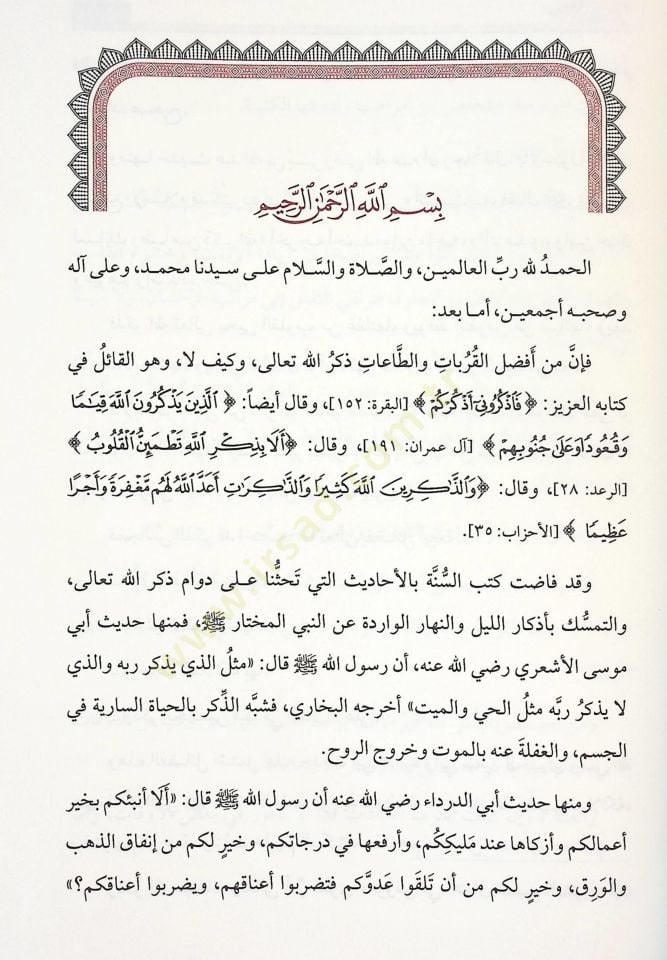 بِسْمِ اللَّهِ الرَّحْمَٰنِ الرَّحِيمِ
الحمدُ لله ربِّ العالمين، والصَّلاة والسَّلام على سيدنا محمد، وعلى آله
وصحبه أجمعين، أما بعد:
فإنَّ من أفضل القُرُباتِ والطَّاعاتِ ذكرُ الله تعالى، وكيف لا، وهو القائل في
كتابه العزيز: ﴿ فَاذْكُرُونِي أَذْكُرْكُمْ ﴾ [البقرة: ١٥٢]، وقال أيضاً: ﴿ الَّذِينَ يَذْكُرُونَ اللَّهَ قِيَامًا
وَقُعُودًا وَعَلَىٰ جُنُوبِهِمْ ﴾ [آل عمران: ١٩١]، وقال: ﴿أَلَا بِذِكْرِ اللَّهِ تَطْمَئِنُّ الْقُلُوبُ ﴾
[الرعد: ٢٨]، وقال: ﴿وَالذَّاكِرِينَ اللَّهَ كَثِيرًا وَالذَّاكِرَاتِ أَعَدَّ اللَّهُ لَهُم مَّغْفِرَةً وَأَجْرًا
عَظِيمًا ﴾ [الأحزاب: ٣٥].
وقد فاضت كتب السُّنَّة بالأحاديث التي تَحثُّنا على دوام ذكر الله تعالى،
والتمسُّك بأذكار الليل والنهار الواردة عن النبي المختار ﷺ، فمنها حديث أبي
موسى الأشعري رضي الله عنه، أن رسول الله ﷺ قال: «مثلُ الذي يذكر ربه والذي
لا يذكرُ ربَّه مثلُ الحي والميت» أخرجه البخاري، فشبَّه الذِّكر بالحياة السارية في
الجسم، والغفلةَ عنه بالموت وخروج الروح.
ومنها حديث أبي الدرداء رضي الله عنه أن رسول الله ﷺ قال: «أَلَا أنبئكم بخير
أعمالكم وأزكاها عند مَليككُم، وأرفعها في درجاتكم، وخيرٍ لكم من إنفاق الذهب
والوَرِق، وخيرٍ لكم من أن تَلقَوا عَدوَّكم فتضربوا أعناقهم، ويضربوا أعناقكم؟»
www.irsad.com.tr